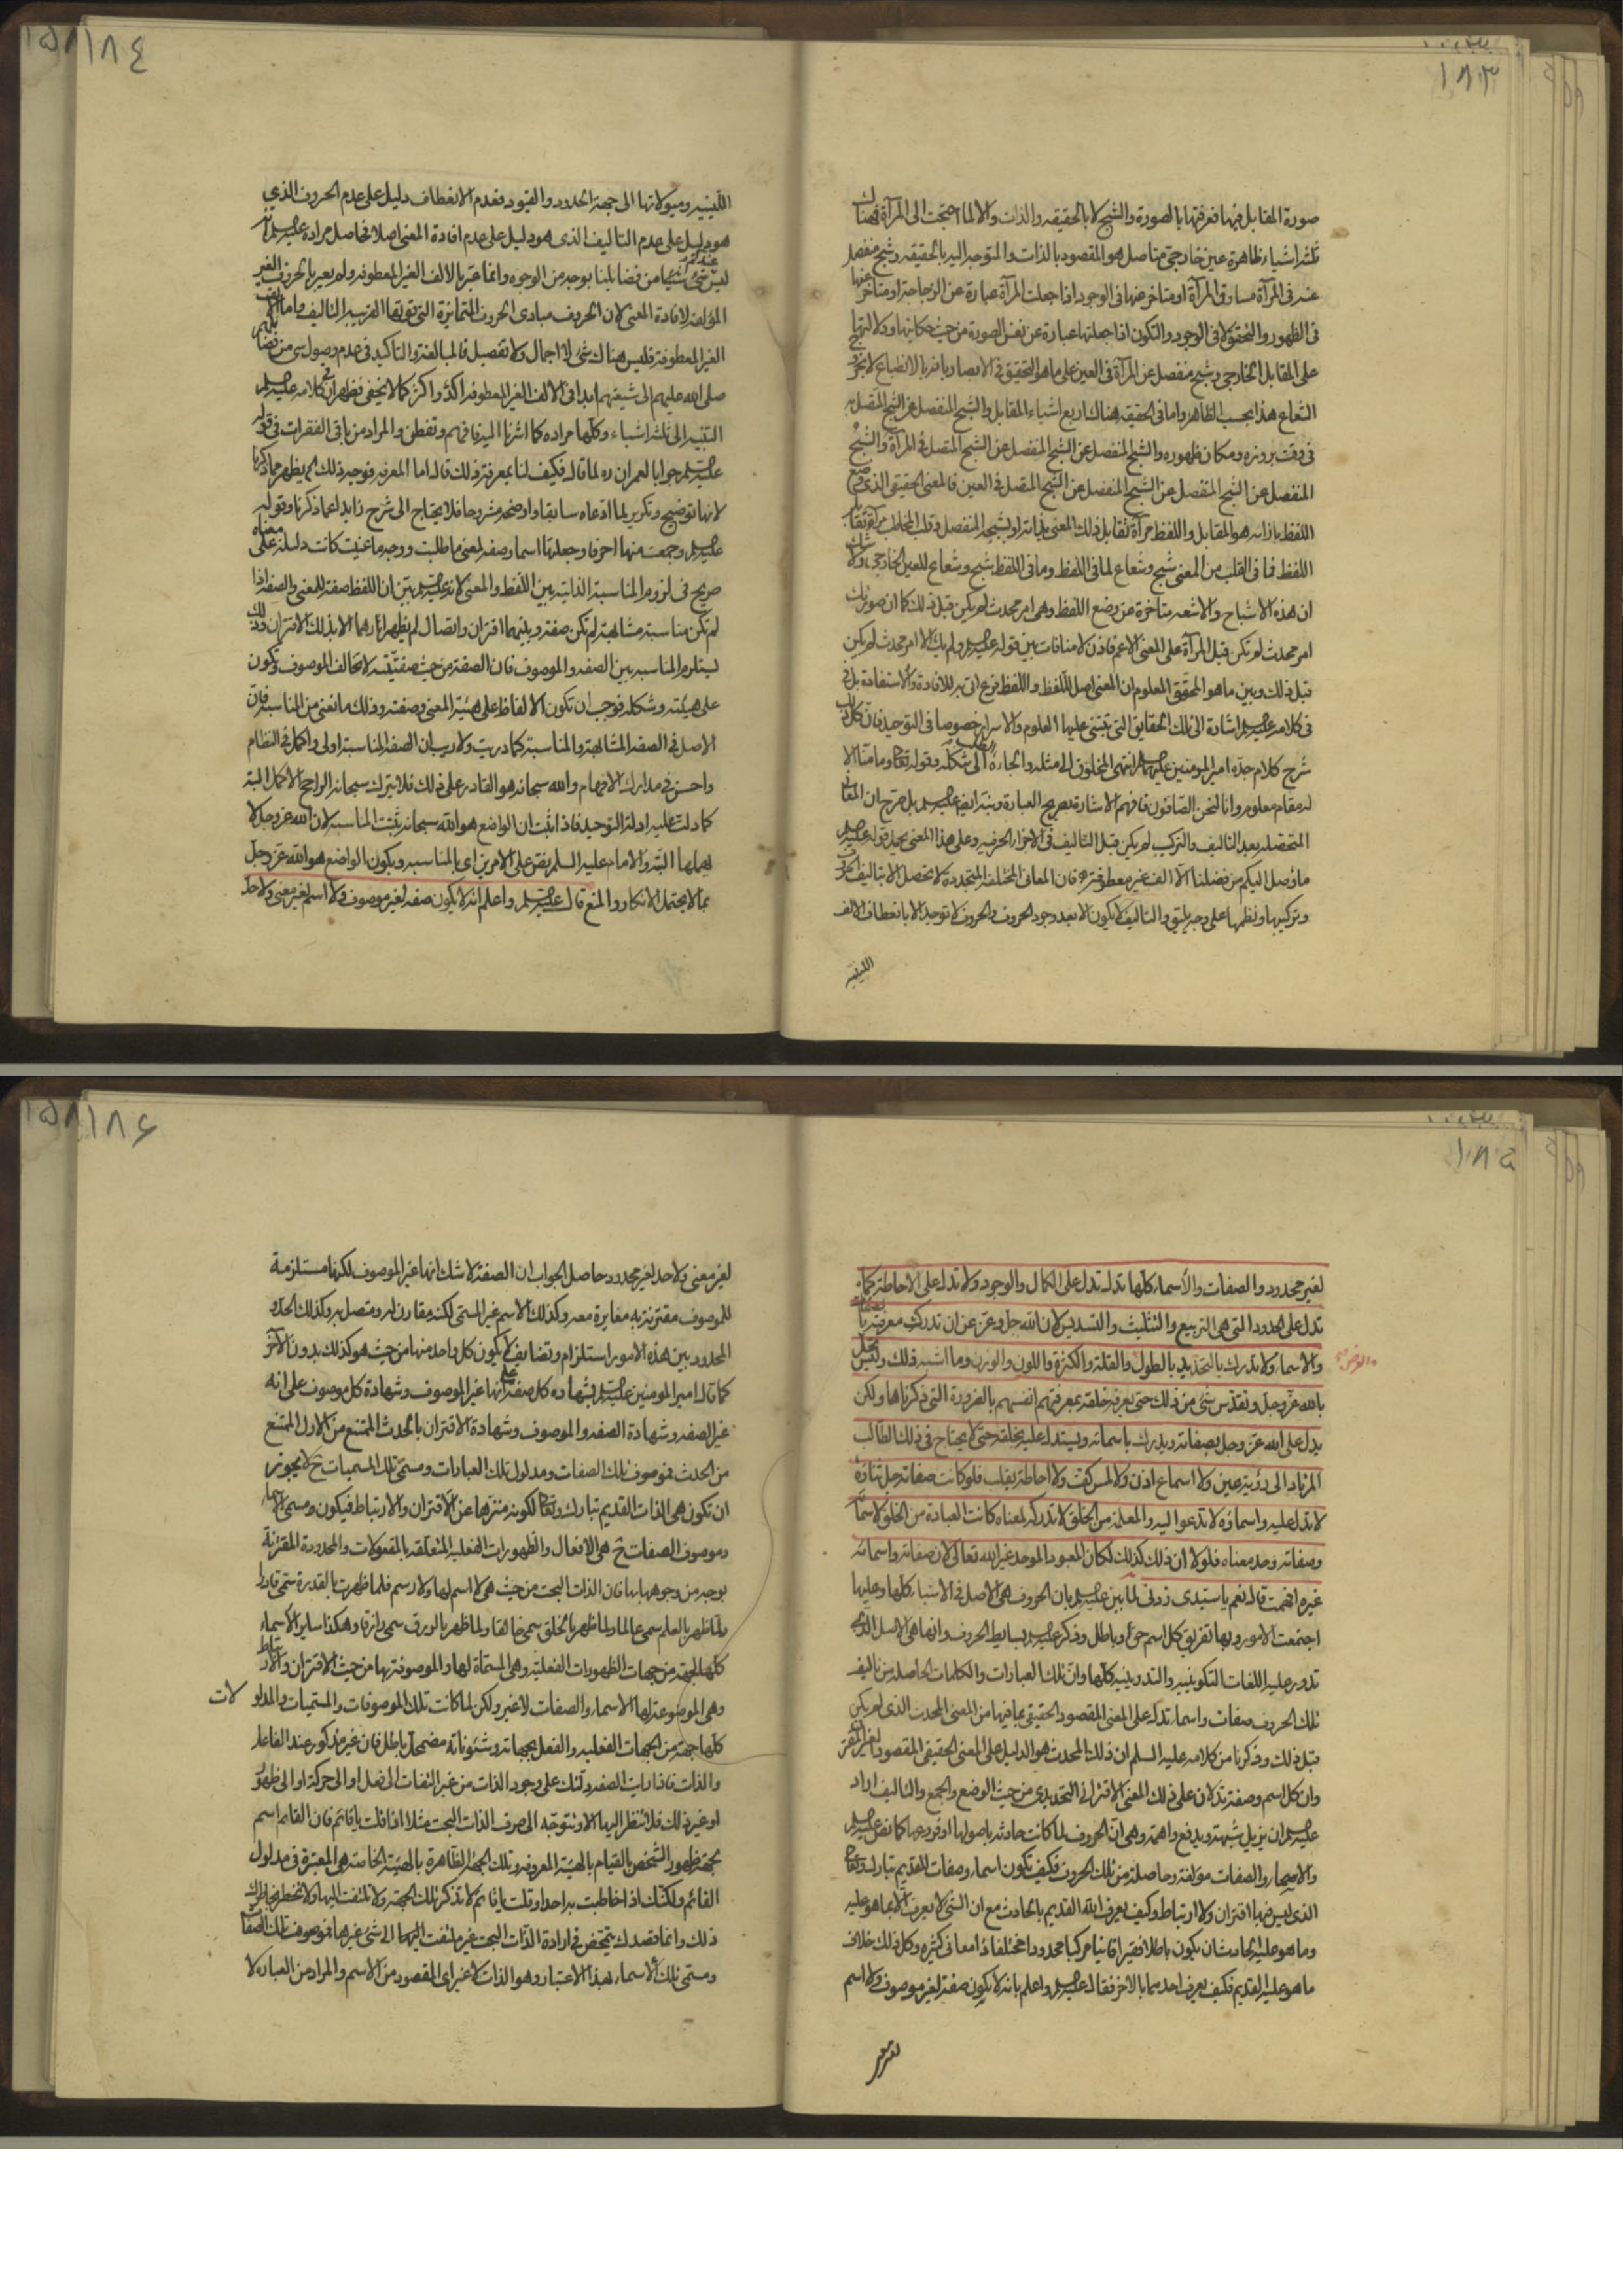 ١٨٣
صورة المقابل فيها فعرفتها بالصورة والشبح لا بالحقيقه والذات والا لما احتجت الى المرآة فهناك
ثلثه اشياء ظاهرة عين خارجى متاصل هو المقصود بالذات والمتوجه اليه بالحقيقه وشبح منفصل
عنه فى المرآة مساوق المرآة او متاخر عنها فى الوجود اذا جعلت المرآة عبارة عن الزجاجة او متاخر عنها
فى الظهور والتحقق لا فى الوجود والتكون اذا جعلتها عبارة عن نفس الصورة من حيث حكايتها ودلالتها
على المقابل الخارجى وشبح منفصل عن المرآة فى العين على ما هو التحقيق فى الابصار بانه بالانطباع لا بخروج
الشعاع هذا بحسب الظاهر واما فى الحقيقه فهناك اربع اشياء المقابل والشبح المنفصل عن الشبح المتصل به
فى وقت بروزه ومكان ظهوره والشبح المنفصل عن الشبح المنفصل عن الشبح المتصل فى المرآة والشبح
المنفصل عن الشبح المنفصل عن الشبح المنفصل عن الشبح المتصل فى العين فالمعنى الحقيقى الذى وضع
اللفظ بازائه هو المقابل واللفظ مرآة تقابل ذلك المعنى بذاته او بشبحه المنفصل وقلب المخاطب مرآة تقابل
اللفظ فما فى القلب من المعنى شبح وشعاع لما فى اللفظ وما فى اللفظ شبح وشعاع للعين الخارجى ولا شك
ان هذه الاشباح والاشعه متاخرة عن وضع اللفظ وهى امر محدث لم يكن قبل ذلك كما ان صورتك
امر محدث لم تكن قبل المرآة على المعنى الاعم فاذن لا منافات بين قوله عليه السلم ولم يك الا امر محدث لم يكن
قبل ذلك وبين ما هو المحقق المعلوم ان المعنى اصل للفظ واللفظ فرع اتى به للافادة والاستفادة بل فى
فى كلامه عليه السلم اشارة الى تلك الحقايق التى تبتنى عليها العلوم والاسرار خصوصا فى التوحيد فان كل ذلك
شرح كلام جده امير المومنين عليه السلم انتهى المخلوق الى مثله والجاءه الطلب الى شكله وقوله تعالى وما منا الا
له مقام معلوم وانا لنحن الصافون فافهم الاشارة بصريح العبارة ونبه ايضا عليه السلم بل صرح ان المعانى
المتحصله بعد التاليف والتركيب لم يكن قبل التاليف فى الاجزاء الحرفيه وعلى هذا المعنى يحمل قوله عليه السلم
ما وصل اليكم من فضلنا الا الف غير معطوفة فان المعانى المختلفة المتجددة لا تحصل الا بتاليف الحروف
وتركيبها ونظمها على وجه يليق والتاليف لا يكون الا بعد وجود الحروف والحروف لا توجد الا بانعطاف الالف
اللينيه
١٨٤
اللينيه وميولاتها الى جهة الحدود والقيود فعدم الانعطاف دليل على عدم الحروف الذى
هو دليل على عدم التاليف الذى هو دليل على عدم افادة المعنى اصلا فحاصل مراده عليه السلم انه
ليس عندكم شئ من فضايلنا بوجه من الوجوه وانما عبر بالالف الغير المعطوفه ولم يعبر بالحروف الغير
المؤلفه لافادة المعنى لان الحروف مبادى الحروف المتمايزة التى قوتها القريبه التاليف واما الالف
الغير المعطوفة فليس هناك شئ لا اجمال ولا تفصيل فالمبالغة والتاكيد فى عدم وصول شئ من فضائلهم
صلى الله عليهم الى شيعتهم ابدا فى الالف الغير المعطوفه اكد واكثر كما لا يخفى فظهر ان فى كلامه عليه السلم
التنبيه الى ثلثه اشياء وكلها مراده كما اشرنا اليه فافهم وتفطن والمراد من باقى الفقرات فى قوله
عليه السلم جوابا لعمران ره لما قال فكيف لنا بمعرفة ذلك قال اما المعرفه فوجه ذلك الخ يظهر مما ذكرنا
لانها توضيح وتكرير لما ادعاه سابقا واوضحه مشروحا فلا يحتاج الى شرح زايد عما ذكرنا وقوله
عليه السلم وجمعت منها احرفا وجعلتها اسما وصفه لمعنى ما طلبت ووجه ما عنيت كانت دليلة على معناه
صريح فى لزوم المناسبة الذاتيه بين اللفظ والمعنى لانه عليه السلم بين ان اللفظ صفة للمعنى والصفه اذا
لم تكن مناسبة مشابهة لم تكن صفة وبينهما اقتران واتصال لم يظهر اثارهما الا بذلك الاقتران وذلك
يستلزم المناسبه بين الصفه والموصوف فان الصفة من حيث صفتيته لا تخالف الموصوف وتكون
على هيئته وشكله فوجب ان تكون الالفاظ على هيئة المعنى وصفته وذلك ما نعنى من المناسبة فان
الاصل فى الصفه المشابهة والمناسبة كما دريت ولا ريب ان الصفه المناسبة اولى واكمل فى النظام
واحسن فى مدارك الافهام والله سبحانه هو القادر على ذلك فلا يترك سبحانه الراجح الاكمل البتة
كما دلت عليه ادلة التوحيد فاذا ثبت ان الواضع هو الله سبحانه ثبتت المناسبه لان الله عز وجل لا
يهملها البتة والامام عليه السلم نص على الامرين اى بالمناسبه وبكون الواضع هو الله عز وجل
بما لا يحتمل الانكار والمنع قال عليه السلم واعلم انه لا يكون صفه لغير موصوف ولا اسم لغير معنى ولا حد
١٨٥
لغير محدود والصفات والأسماء كلها تدل تدل على الكمال والوجود ولا تدل على الاحاطة كما
تدل على الحدود التى هى التربيع والتثليث والتسديس لان الله جل وعز عن ان تدرك معرفته بالصفات
والاسماء ولا تدرك بالتحديد بالطول والقلة والكثرة واللون والوزن وما اشبه ذلك وليس يحل
والعرض
بالله عز وجل وتقدس شئ من ذلك حتى يعرفه خلقه بمعرفتهم انفسهم بالضرورة التى ذكرناها ولكن
يدل على الله عز وجل بصفاته ويدرك باسمائه ويستدل عليه بخلقه حتى لا يحتاج فى ذلك الطالب
المرتاد الى رؤية عين ولا استماع اذن ولا لمس كف ولا احاطة بقلب فلو كانت صفاته جل ثناؤه
لا تدل عليه واسماؤه لا تدعوا اليه والمعلمة من الخلق لا تدركه لمعناه كانت العبادة من الخلق لاسمائه
وصفاته وحد معناه فلولا ان ذلك كذلك لكان المعبود الموحد غير الله تعالى لان صفاته واسمائه
غيره افهمت قال نعم يا سيدى زدنى لما بين عليه السلم بان الحروف هى الاصل فى الاشياء كلها وعليها
اجتمعت الامور وبها تفريق كل اسم حق وباطل وذكر عليه السلم بسايط الحروف وانها هى الاصل الذى
تدور عليه اللغات التكوينيه والتدوينيه كلها وان تلك العبارات والكلمات الحاصله من تاليف
تلك الحروف صفات واسماء تدل على المعنى المقصود الحقيقى بما فيها من المعنى المحدث الذى لم يكن
قبل ذلك وذكرنا من كلامه عليه السلم ان ذلك المحدث هو الدليل على المعنى الحقيقى المقصود
وان كل اسم وصفة تدلان على ذلك المعنى الاقترانى التحديدى من حيث الوضع والجمع والتاليف اراد
عليه السلم ان يزيل شبهته ويدفع واهمته وهى ان الحروف لما كانت حادثه باصولها او فروعها كما نص عليه السلم
والاسماء والصفات مؤلفه وحاصلة من تلك الحروف فكيف تكون اسماء وصفات للقديم تبارك وتعالى
الذى ليس فيها اقتران ولا ارتباط وكيف يعرف الله القديم بالحادث مع ان الشئ لا يعرف الا بما هو عليه
وما هو عليه الحادث ان يكون باطلا فقيرا فانيا مركبا محدودا مختلفا ذا معانى كثيره وكل ذلك خلاف
ما هو عليه القديم فكيف يعرف احدهما بالاخر فقال عليه السلم واعلم بانه لا يكون صفة لغير موصوف ولا اسم
لغير
١٨٦
لغير معنى ولا حد لغير محدود حاصل الجواب ان الصفة لا شك انها غير الموصوف لكنها مستلزمة
للموصوف مقترنة به مغايرة معه وكذلك الاسم غير المسمى لكنه مقارن له ومتصل به وكذلك الحد و
المحدود بين هذه الامور استلزام وتضايف لا يكون كل واحد منها من حيث هو كذلك بدون الآخر
كما قال امير المومنين عليه السلم بشهادة كل صفة على انها غير الموصوف وشهادة كل موصوف على انه
غير الصفه وشهادة الصفه والموصوف وشهادة الاقتران بالحدث الممتنع من الازل الممتنع
من الحدث فموصوف تلك الصفات ومدلول تلك العبارات ومسمى تلك المسميات ح لا يجوز
ان تكون هى الذات القديم تبارك وتعالى لكونه منزها عن الاقتران والارتباط فيكون مسمى الاسماء
وموصوف الصفات ح هى الافعال والظهورات الفعليه المتعلقه بالمفعولات والمحدودة المقترنة
بوجه من وجوهها بها فان الذات البحت من حيث هى لا اسم لها ولا رسم فلما ظهرت بالقدرة سمى قادرا
ولما ظهر بالعلم سمى عالما ولما ظهر بالخلق سمى خالقا ولما ظهر بالرزق سمى رازقا وهكذا ساير الاسماء
كلها لجهة من جهات الظهورات الفعلية وهى المسماة لها والموصوفة بها من حيث الاقتران والارتباط
وهى الموضوعة لها الاسماء والصفات لا غير ولكن لما كانت تلك الموصوفات والمسميات والمدلولات
كلها جهة من الجهات الفعليه والفعل بجهاته وشئوناته مضمحل باطل فان غير مذكور عند الفاعل
والذات فاذا رايت الصفه دلتك على وجود الذات من غير التفات الى فعل او الى حركة او الى ظهور
او غير ذلك فلا تنظر اليها الا وتتوجه الى صرف الذات البحت مثلا اذا قلت يا قائم فان القائم اسم
لجهة ظهور الشخص بالقيام بالهيئة المعروفه وتلك الجهة الظاهرة بالهيئة الخاصة هى المعتبرة فى مدلول
القائم ولكنك اذا خاطبت به احدا وقلت يا قائم لا تذكر تلك الجهة ولا تلتفت اليها ولا تخطر بخاطرك
ذلك وانما قصدك يتمحض فى ارادة الذات البحت غير ملتفت اليها الى شئ غيرها فموصوف تلك الصفات
ومسمى تلك الاسماء بهذا الاعتبار وهو الذات لا غير اى المقصود من الاسم والمراد من العباره لا